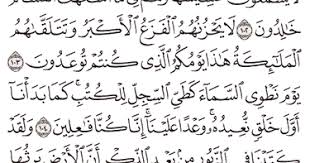 خَٰلِدُونَ ١٠٢ لَا يَحْزُنُهُمُ ٱلْفَزَعُ ٱلْأَكْبَرُ وَتَتَلَقَّىٰهُمُ
ٱلْمَلَٰٓئِكَةُ هَٰذَا يَوْمُكُمُ ٱلَّذِى كُنتُمْ تُوعَدُونَ ١٠٣
يَوْمَ نَطْوِى ٱلسَّمَآءَ كَطَىِّ ٱلسِّجِلِّ لِلْكُتُبِ ۚ كَمَا بَدَأْنَآ
أَوَّلَ خَلْقٍ نُّعِيدُهُۥ ۚ وَعْدًا عَلَيْنَآ ۚ إِنَّا كُنَّا فَٰعِلِينَ ١٠٤ وَلَقَدْ
كَتَبْنَا فِى ٱلزَّبُورِ مِنۢ بَعْدِ ٱلذِّكْرِ أَنَّ ٱلْأَرْضَ يَرِثُهَا